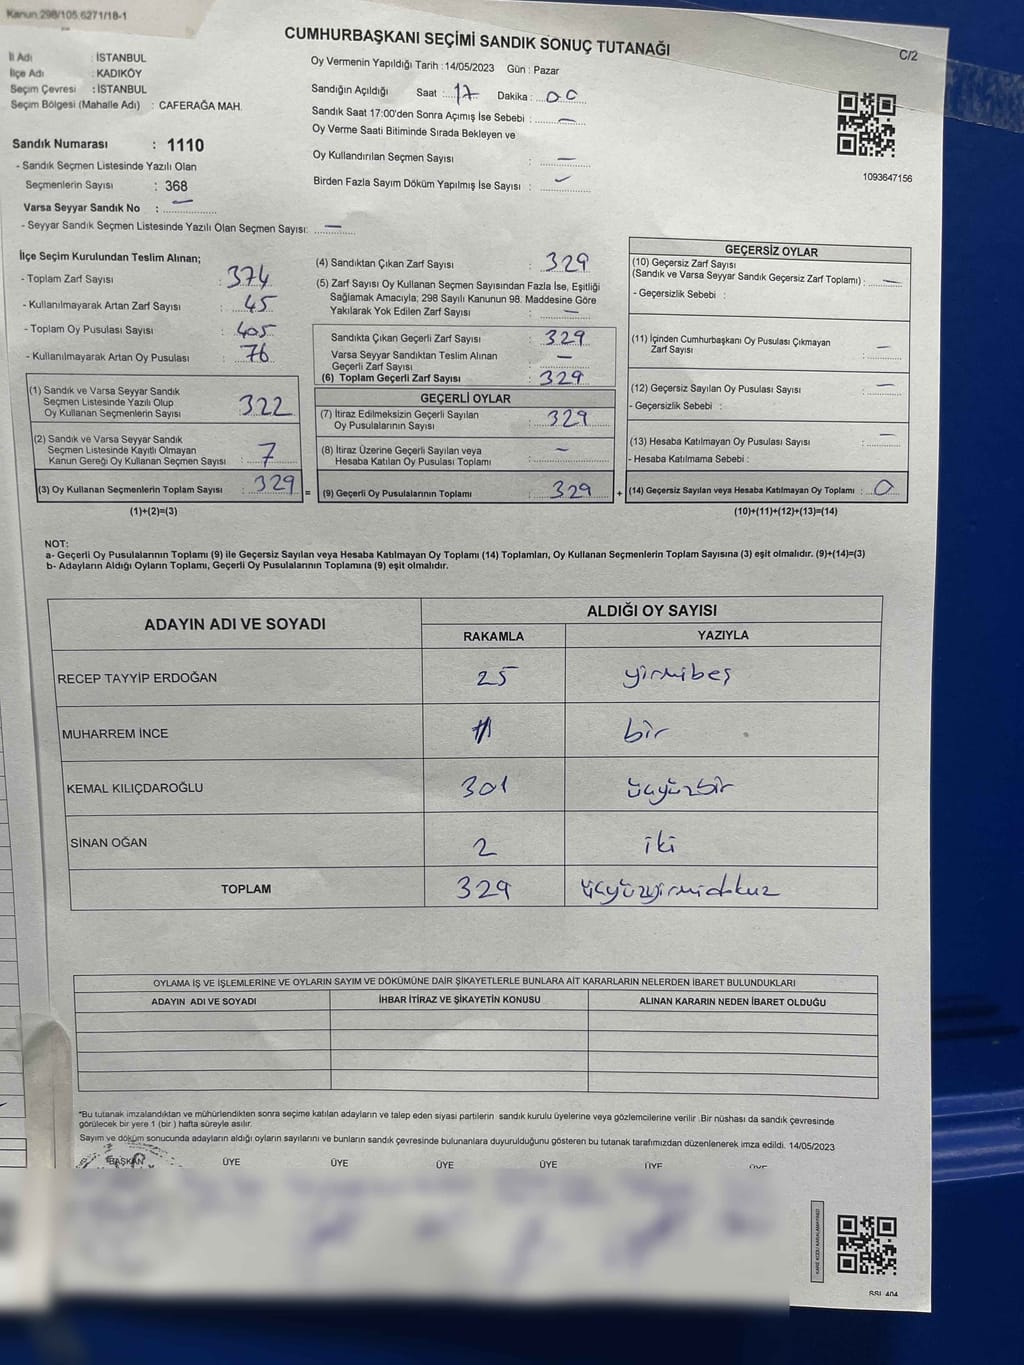 Kanun.298/105.6271/18-1
CUMHURBAŞKANI SEÇİMİ SANDIK SONUÇ TUTANAĞI
C/2
İl Adı : İSTANBUL
İlçe Adı : KADIKÖY
Seçim Çevresi : İSTANBUL
Seçim Bölgesi (Mahalle Adı) : CAFERAĞA MAH.
Sandık Numarası : 1110
- Sandık Seçmen Listesinde Yazılı Olan
Seçmenlerin Sayısı : 368
Varsa Seyyar Sandık No : —
- Seyyar Sandık Seçmen Listesinde Yazılı Olan Seçmen Sayısı: —
Oy Vermenin Yapıldığı Tarih :14/05/2023 Gün : Pazar
Sandığın Açıldığı Saat : 17 Dakika : 00
Sandık Saat 17:00'den Sonra Açımış İse Sebebi : —
Oy Verme Saati Bitiminde Sırada Bekleyen ve
Oy Kullandırılan Seçmen Sayısı : —
Birden Fazla Sayım Döküm Yapılmış İse Sayısı : —
1093647156
İlçe Seçim Kurulundan Teslim Alınan;
- Toplam Zarf Sayısı : 374
- Kullanılmayarak Artan Zarf Sayısı : 45
- Toplam Oy Pusulası Sayısı : 405
- Kullanılmayarak Artan Oy Pusulası : 76
(1) Sandık ve Varsa Seyyar Sandık
Seçmen Listesinde Yazılı Olup
Oy Kullanan Seçmenlerin Sayısı : 322
(2) Sandık ve Varsa Seyyar Sandık
Seçmen Listesinde Kayıtlı Olmayan
Kanun Gereği Oy Kullanan Seçmen Sayısı : 7
(3) Oy Kullanan Seçmenlerin Toplam Sayısı : 329
(1)+(2)=(3)
=
(4) Sandıktan Çıkan Zarf Sayısı : 329
(5) Zarf Sayısı Oy Kullanan Seçmen Sayısından Fazla İse, Eşitliği
Sağlamak Amacıyla; 298 Sayılı Kanunun 98. Maddesine Göre
Yakılarak Yok Edilen Zarf Sayısı : —
Sandıkta Çıkan Geçerli Zarf Sayısı : 329
Varsa Seyyar Sandıktan Teslim Alınan
Geçerli Zarf Sayısı : —
(6) Toplam Geçerli Zarf Sayısı : 329
GEÇERLİ OYLAR
(7) İtiraz Edilmeksizin Geçerli Sayılan
Oy Pusulalarının Sayısı : 329
(8) İtiraz Üzerine Geçerli Sayılan veya
Hesaba Katılan Oy Pusulası Toplamı : —
(9) Geçerli Oy Pusulalarının Toplamı : 329
+
GEÇERSİZ OYLAR
(10) Geçersiz Zarf Sayısı
(Sandık ve Varsa Seyyar Sandık Geçersiz Zarf Toplamı) : —
- Geçersizlik Sebebi :
(11) İçinden Cumhurbaşkanı Oy Pusulası Çıkmayan
Zarf Sayısı : —
(12) Geçersiz Sayılan Oy Pusulası Sayısı : —
- Geçersizlik Sebebi :
(13) Hesaba Katılmayan Oy Pusulası Sayısı : —
- Hesaba Katılmama Sebebi :
(14) Geçersiz Sayılan veya Hesaba Katılmayan Oy Toplamı : 0
(10)+(11)+(12)+(13)=(14)
NOT:
a- Geçerli Oy Pusulalarının Toplamı (9) ile Geçersiz Sayılan veya Hesaba Katılmayan Oy Toplamı (14) Toplamları, Oy Kullanan Seçmenlerin Toplam Sayısına (3) eşit olmalıdır. (9)+(14)=(3)
b- Adayların Aldığı Oyların Toplamı, Geçerli Oy Pusulalarının Toplamına (9) eşit olmalıdır.
ADAYIN ADI VE SOYADI ALDIĞI OY SAYISI
RAKAMLA YAZIYLA
RECEP TAYYİP ERDOĞAN 25 yirmibeş
MUHARREM İNCE 1 bir
KEMAL KILIÇDAROĞLU 301 üçyüzbir
SİNAN OĞAN 2 iki
TOPLAM 329 üçyüzyirmidokuz
OYLAMA İŞ VE İŞLEMLERİNE VE OYLARIN SAYIM VE DÖKÜMÜNE DAİR ŞİKAYETLERLE BUNLARA AİT KARARLARIN NELERDEN İBARET BULUNDUKLARI
ADAYIN ADI VE SOYADI İHBAR İTİRAZ VE ŞİKAYETİN KONUSU ALINAN KARARIN NEDEN İBARET OLDUĞU
*Bu tutanak imzalandıktan ve mühürlendikten sonra seçime katılan adayların ve talep eden siyasi partilerin sandık kurulu üyelerine veya gözlemcilerine verilir .Bir nüshası da sandık çevresinde
görülecek bir yere 1 (bir ) hafta süreyle asılır.
Sayım ve döküm sonucunda adayların aldığı oyların sayılarını ve bunların sandık çevresinde bulunanlara duyurulduğunu gösteren bu tutanak tarafımızdan düzenlenerek imza edildi. 14/05/2023
BAŞKAN ÜYE ÜYE ÜYE ÜYE ÜYE ÜYE